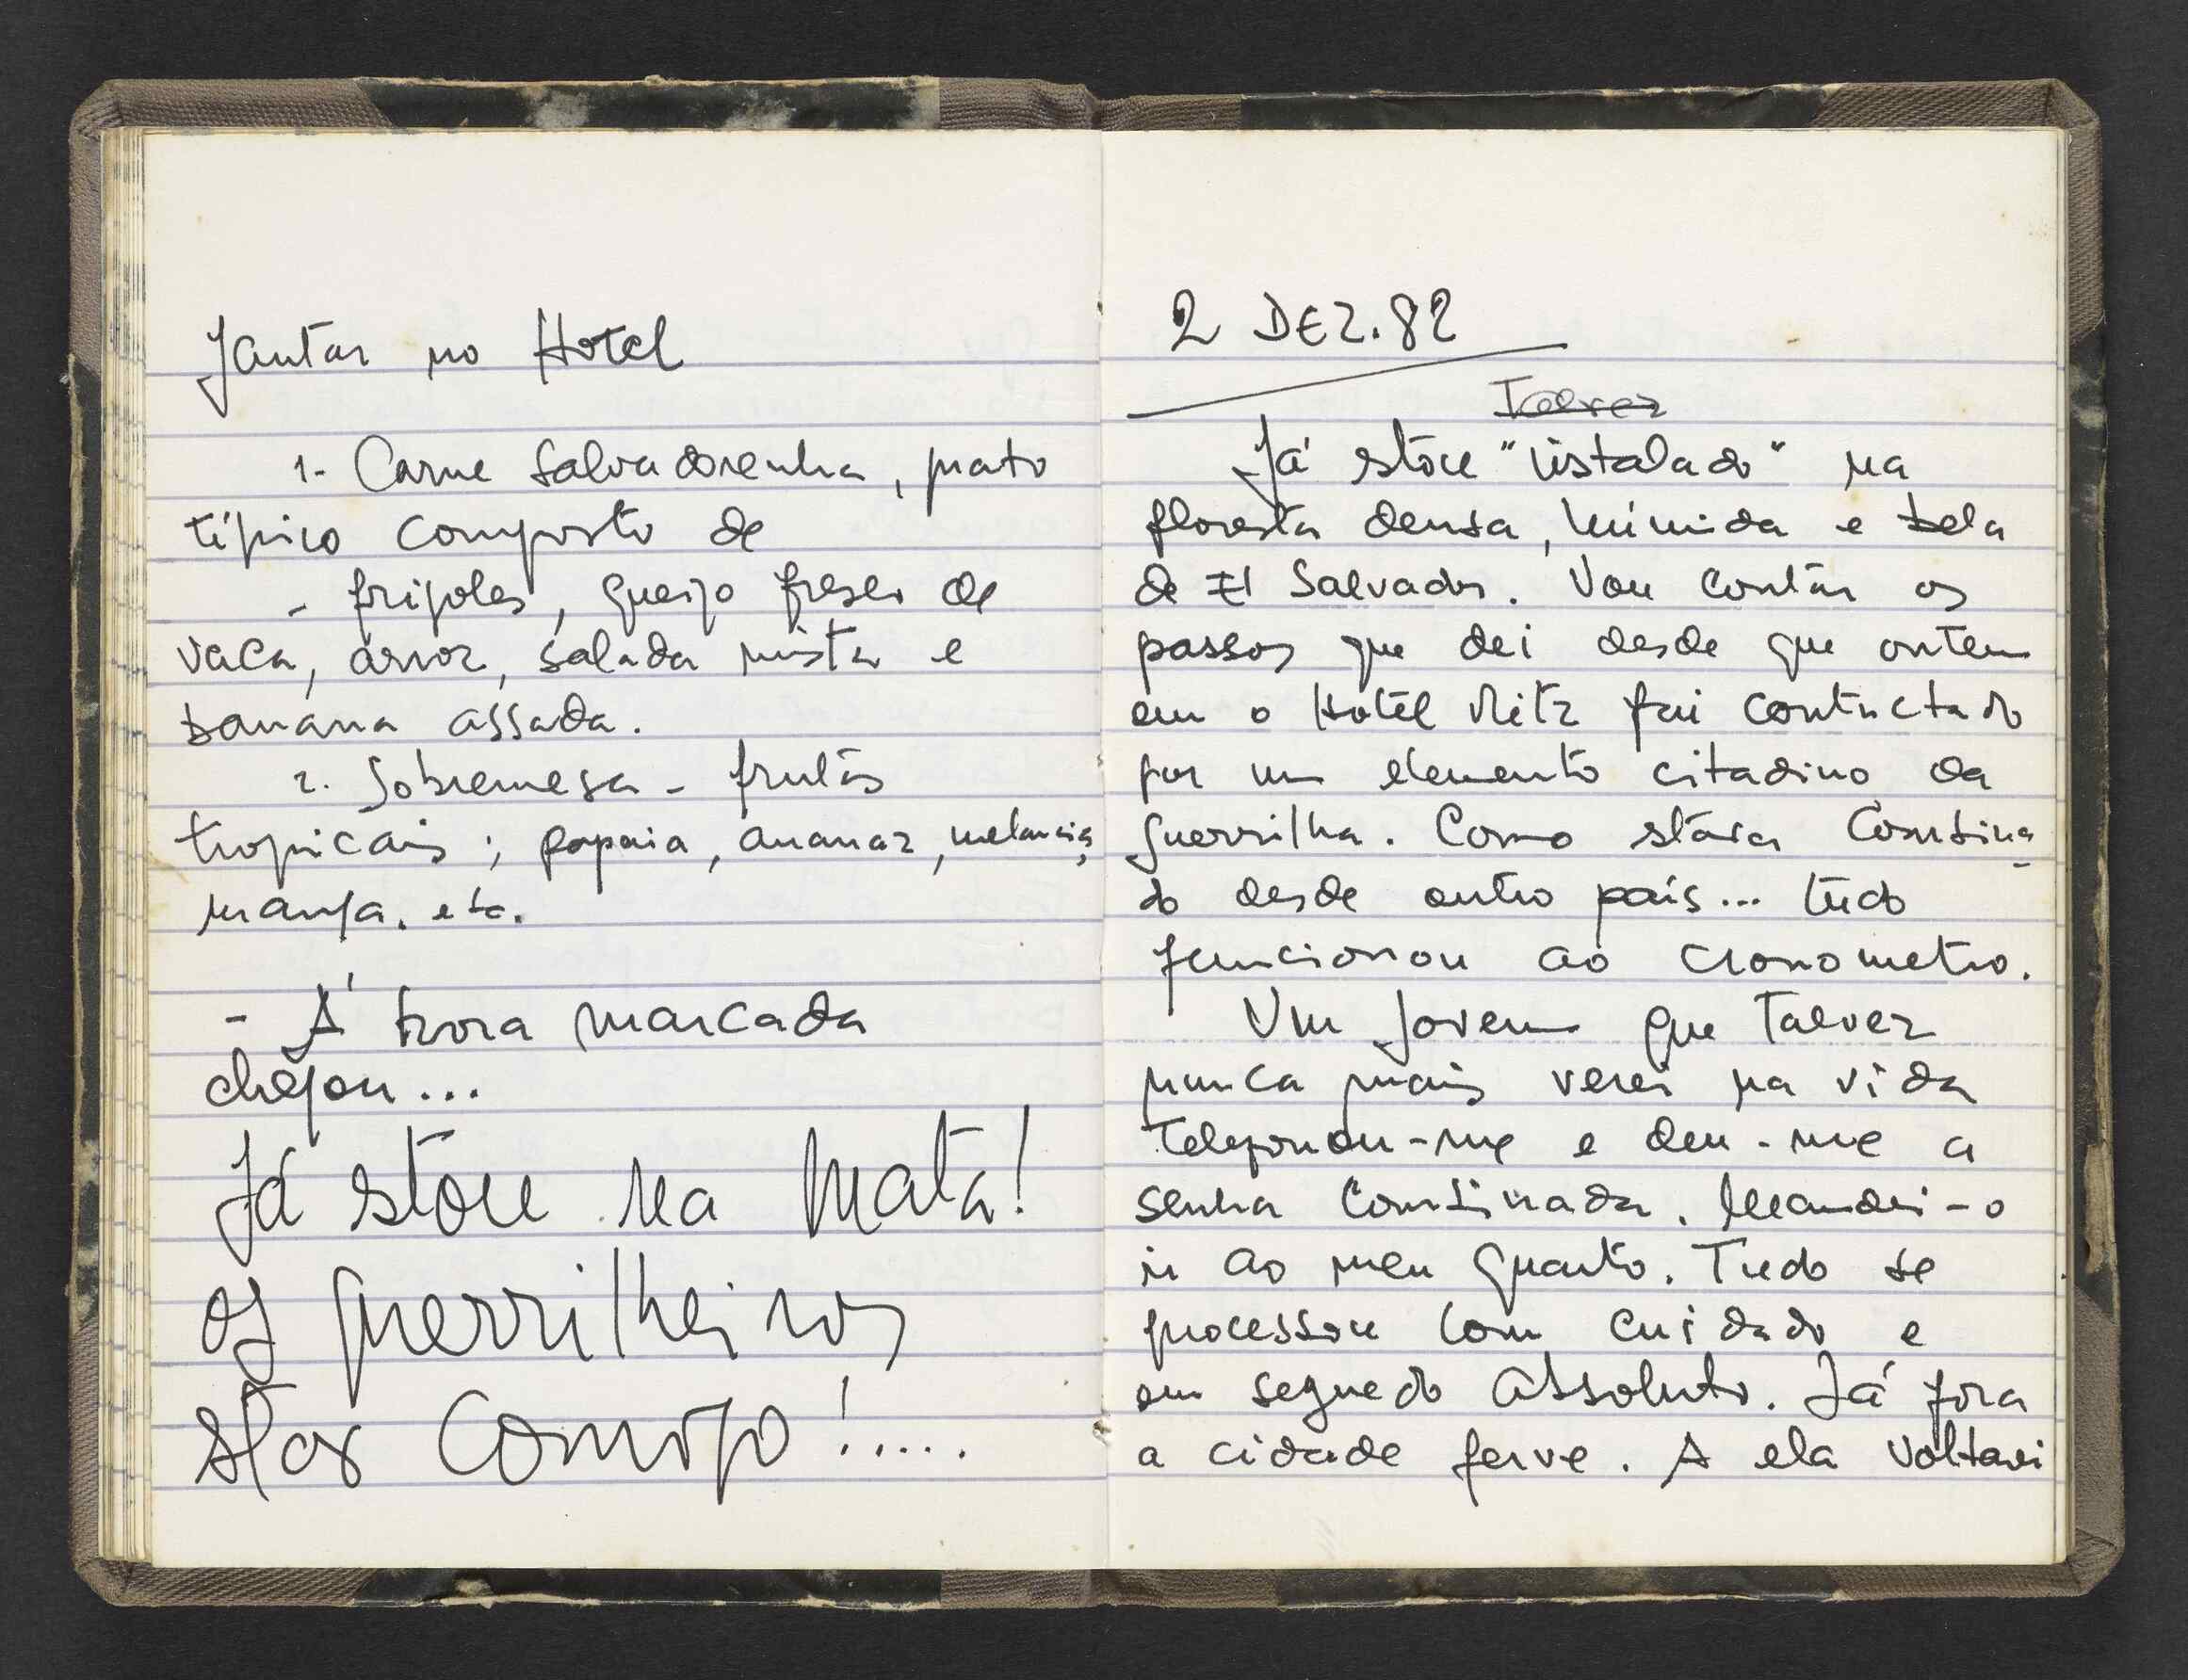 Jantar no Hotel
1- Carne Salvadorenha, prato
típico composto de
- frijoles, queijo fresco de
vaca, arroz, salada mista e
banana assada.
2. Sobremesa - frutas
tropicais; papaia, ananaz, melancia,
manga. etc.
- Á hora marcada
chegou...
Já stou na Mata!
os guerrilheiros
stão comigo!.....
2 DEZ.82
Talvez
Já stou "instalado" na
floresta densa, húmida e bela
de El Salvador. Vou contar os
passos que dei desde que ontem
em o Hotel Ritz fui contactado
por um elemento citadino da
guerrilha. Como stava Combina-
do desde outro país... tudo
funcionou ao cronometro.
Um jovem que Talvez
nunca mais verei na vida
Telefonou-me e deu-me a
senha Combinada. Mandei-o
ir ao meu quarto. Tudo se
processou com cuidado e
em seguedo absoluto. Lá fora
a cidade ferve. A ela voltarei